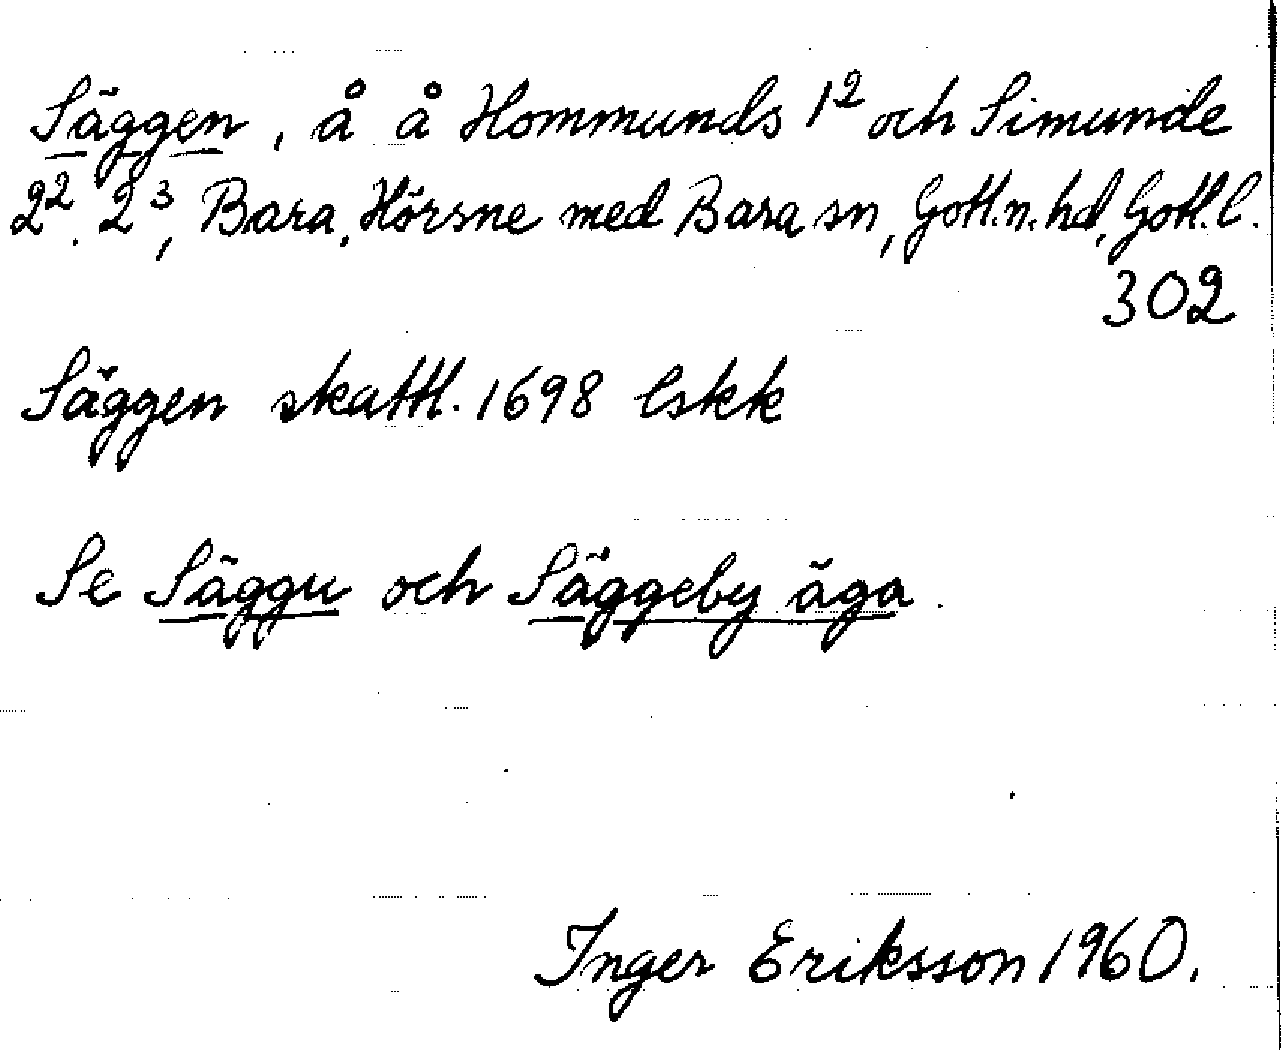 Säggen, å å Hommunds 1² och Simunde
2². 2³, Bara, Hörsne med Bara sn, Gotl.n.hd, Gotl.l.
302
Säggen skattl. 1698 lskk
Se Säggu och Säggeby äga.
Inger Eriksson 1960.